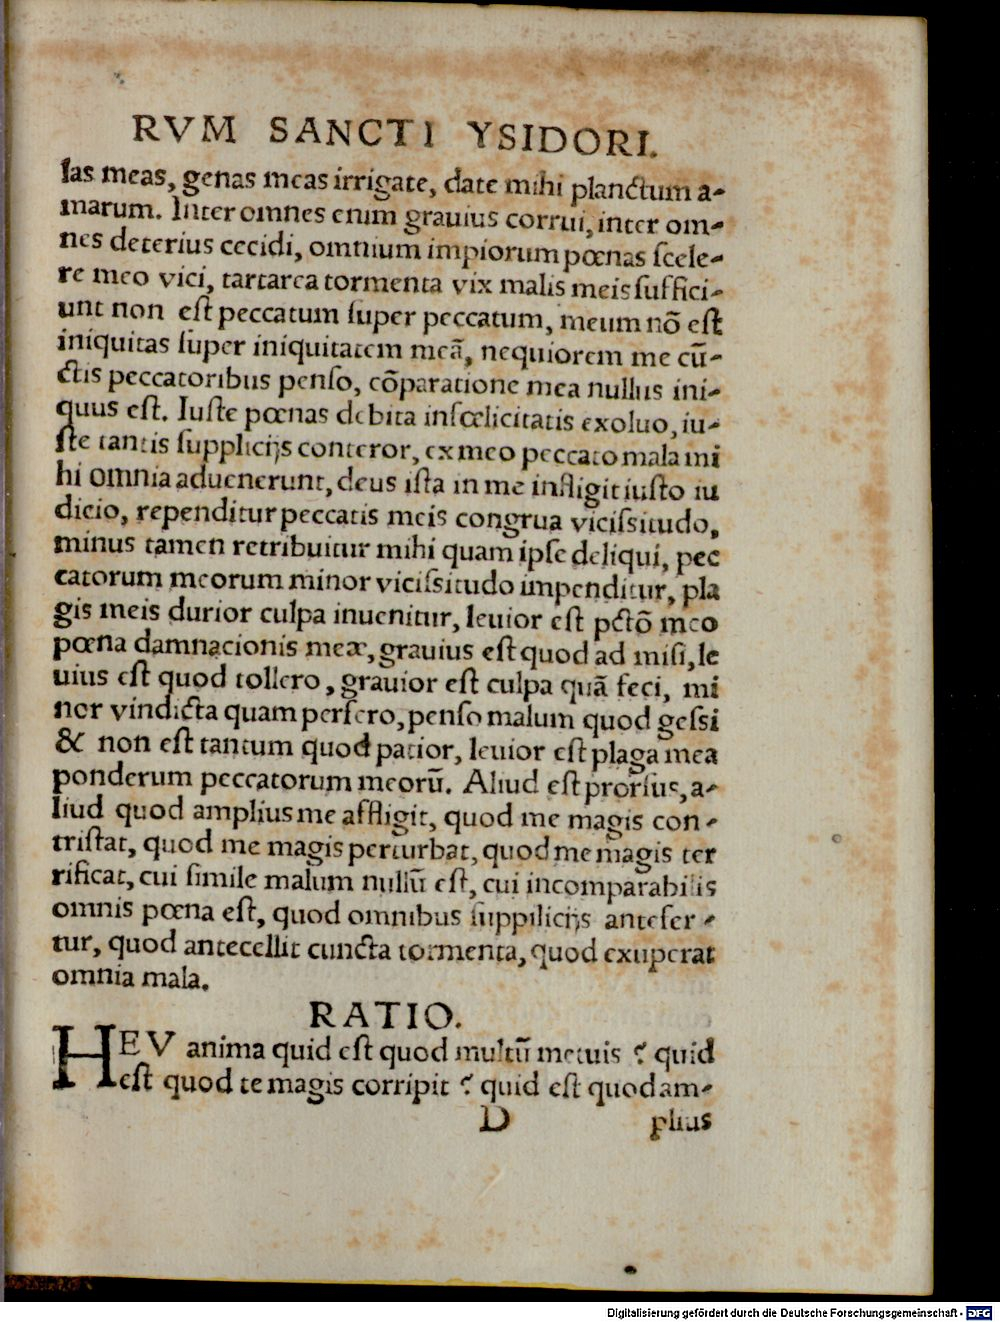 RVM SANCTI YSIDORI.
las meas, genas meas irrigate, date mihi planctum a-
marum. Inter omnes enim grauius corrui, inter om-
nes deterius cecidi, omnium impiorum pœnas ſcele-
re meo vici, tartarea tormenta vix malis meis ſuffici-
unt non eſt peccatum ſuper peccatum, meum nõ eſt
iniquitas ſuper iniquitatem meã, nequiorem me cũ-
ctis peccatoribus penſo, cõparatione mea nullus ini-
quus eſt. Iuſte pœnas debita inſœlicitatis exoluo, iu-
ſte tantis ſupplicijs conteror, ex meo peccato mala mi
hi omnia aduenerunt, deus iſta in me infligit iuſto iu
dicio, rependitur peccatis meis congrua viciſsitudo,
minus tamen retribuitur mihi quam ipſe deliqui, pec
catorum meorum minor viciſsitudo impenditur, pla
gis meis durior culpa inuenitur, leuior eſt pctõ meo
pœna damnacionis meæ, grauius eſt quod ad miſi, le
uius eſt quod tollero, grauior eſt culpa quã feci, mi
nor vindicta quam perfero, penſo malum quod geſsi
& non eſt tantum quod patior, leuior eſt plaga mea
ponderum peccatorum meorũ. Aliud eſt prorſus, a-
liud quod amplius me affligit, quod me magis con-
triſtat, quod me magis perturbat, quod me magis ter
rificat, cui ſimile malum nullũ eſt, cui incomparabilis
omnis pœna eſt, quod omnibus ſuppilicijs antefer-
tur, quod antecellit cuncta tormenta, quod exuperat
omnia mala.
RATIO.
HEV anima quid eſt quod multũ metuis ? quid
eſt quod te magis corripit ? quid eſt quod am-
D plius
Digitalisierung gefördert durch die Deutsche Forschungsgemeinschaft - DFG